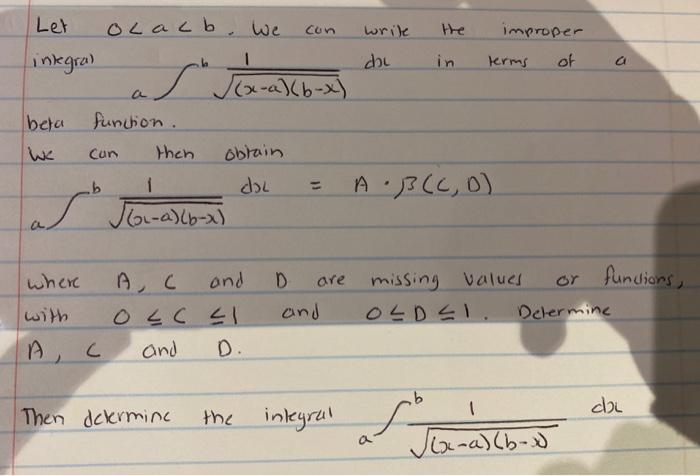 Let 0 < a < b. We can write the improper
integral ₐ∫ᵇ 1/√((x-a)(b-x)) dx in terms of a
beta function.
We can then obtain
ₐ∫ᵇ 1/√((x-a)(b-x)) dx = A · β(C, D)
where A, C and D are missing values or functions,
with 0 ≤ C ≤ 1 and 0 ≤ D ≤ 1. Determine
A, C and D.
Then determine the integral ₐ∫ᵇ 1/√((x-a)(b-x)) dx